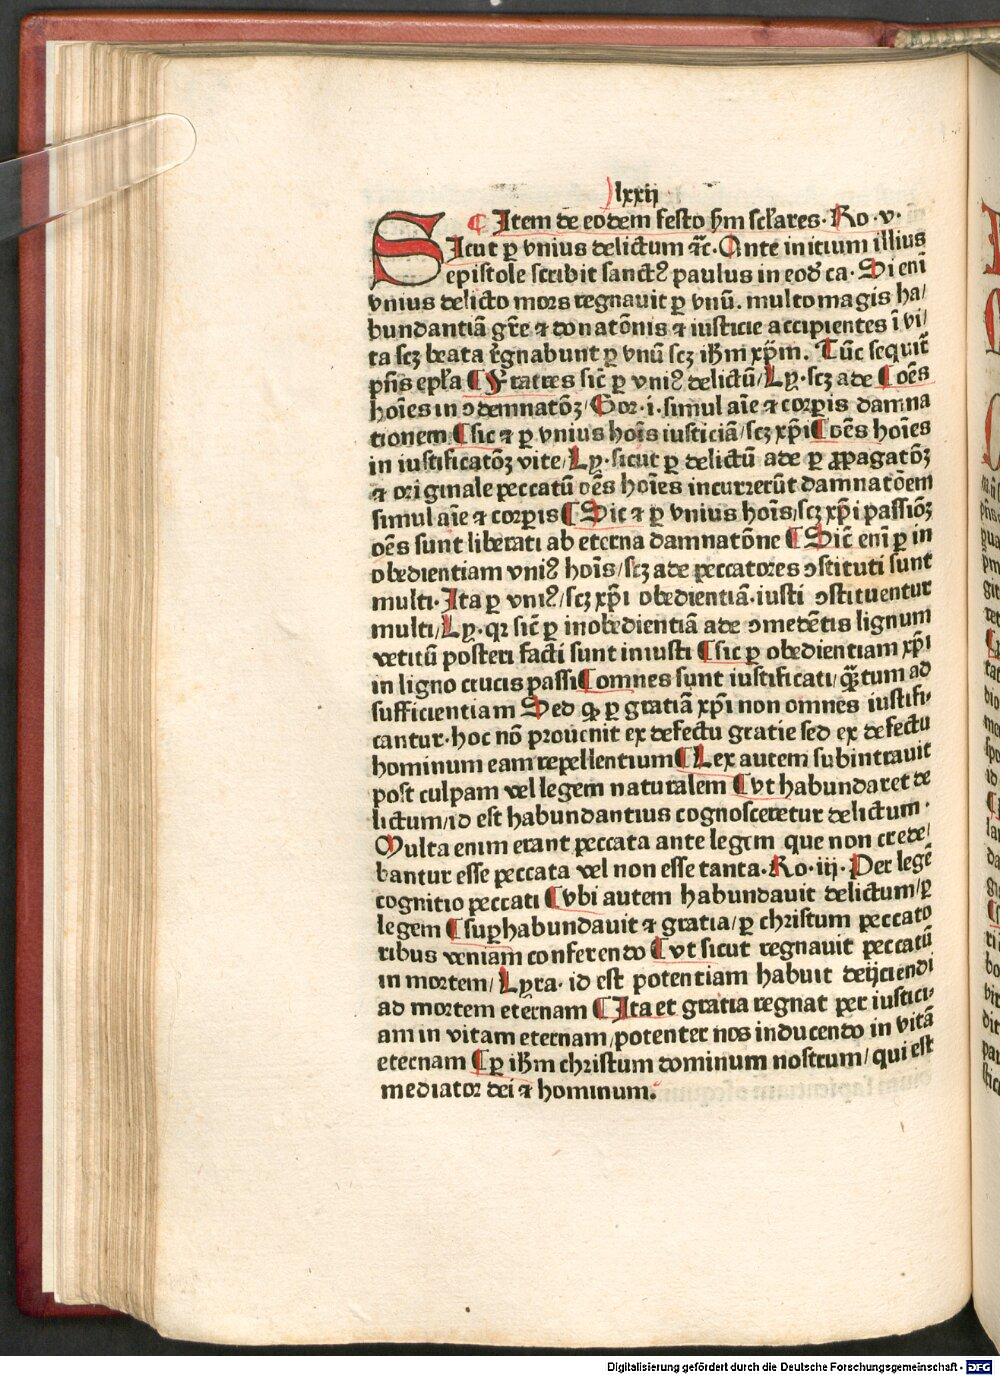 lxxij
¶ Item de eodem festo ẜm scl'ares. Ro. v.
SIcut ꝑ vnius delictum ⁊c̃. Ante initium illius
epistole scribit sanctꝰ paulus in eod' ca. Si eni̅
vnius delicto mors regnauit ꝑ vnu̅. multo magis ha/
bundantia̅ gr̅e ⁊ donato̅nis ⁊ iusticie accipientes i̅ vi/
ta scꝫ beata re̅gnabunt ꝑ vnu̅ scꝫ ih̅m xp̅m. Tu̅c sequit̃
p̅ns ep̅la ¶ Fratres sic̃ ꝑ vniꝰ delictu̅/ Ly. scꝫ ade ¶ o̅es
ho̅ies in ↄdemnato̅ꝫ/ Cor. i. simul ai̅e ⁊ corꝑis damna
tionem ¶ sic ⁊ ꝑ vnius hoi̅s iusticia̅/ scꝫ xp̅i ¶ o̅es ho̅ies
in iustificato̅ꝫ vite/ Ly. sicut ꝑ delictu̅ ade ꝑ ꝓpagato̅ꝫ
⁊ originale peccatu̅ o̅es ho̅ies incurreru̅t damnato̅em
simul ai̅e ⁊ corꝑis ¶ Sic ⁊ ꝑ vnius hoi̅s/ scꝫ xp̅i passio̅ꝫ
o̅es sunt liberati ab eterna damnato̅ne ¶ Sic̃ eni̅ ꝑ in
obedientiam vniꝰ hoi̅s/ scꝫ ade peccatores ↄstituti sunt
multi. Ita ꝑ vniꝰ/ scꝫ xp̅i obedientia̅. iusti ↄstituentur
multi/ Ly. qꝛ sic̃ ꝑ inobedientia̅ ade ↄmede̅tis lignum
vetitu̅ posteri facti sunt iniusti ¶ sic ꝑ obedientiam xp̅i
in ligno crucis passi ¶ omnes sunt iustificati/ qua̅tum ad
sufficientiam Sed ꝙ ꝑ gratia̅ xp̅i non omnes iustifi-
cantur. hoc no̅ prouenit ex defectu gratie sed ex defectu
hominum eam repellentium ¶ Lex autem subintrauit
post culpam vel legem naturalem ¶ vt habundaret de
lictum/ id est habundantius cognosceretur delictum.
Multa enim erant peccata ante legem que non crede/
bantur esse peccata vel non esse tanta. Ro. iij. Per lege̅
cognitio peccati ¶ vbi autem habundauit delictum/ ꝑ
legem ¶ suꝑhabundauit ⁊ gratia/ ꝑ christum peccato
ribus veniam conferendo ¶ vt sicut regnauit peccatu̅
in mortem/ Lyra. id est potentiam habuit deijciendi
ad mortem eternam ¶ Ita et gratia regnat per iustici-
am in vitam eternam/ potenter nos inducendo in vita̅
eternam ¶ ꝑ ih̅m christum dominum nostrum/ qui est
mediator dei ⁊ hominum.
Digitalisierung gefördert durch die Deutsche Forschungsgemeinschaft - DFG